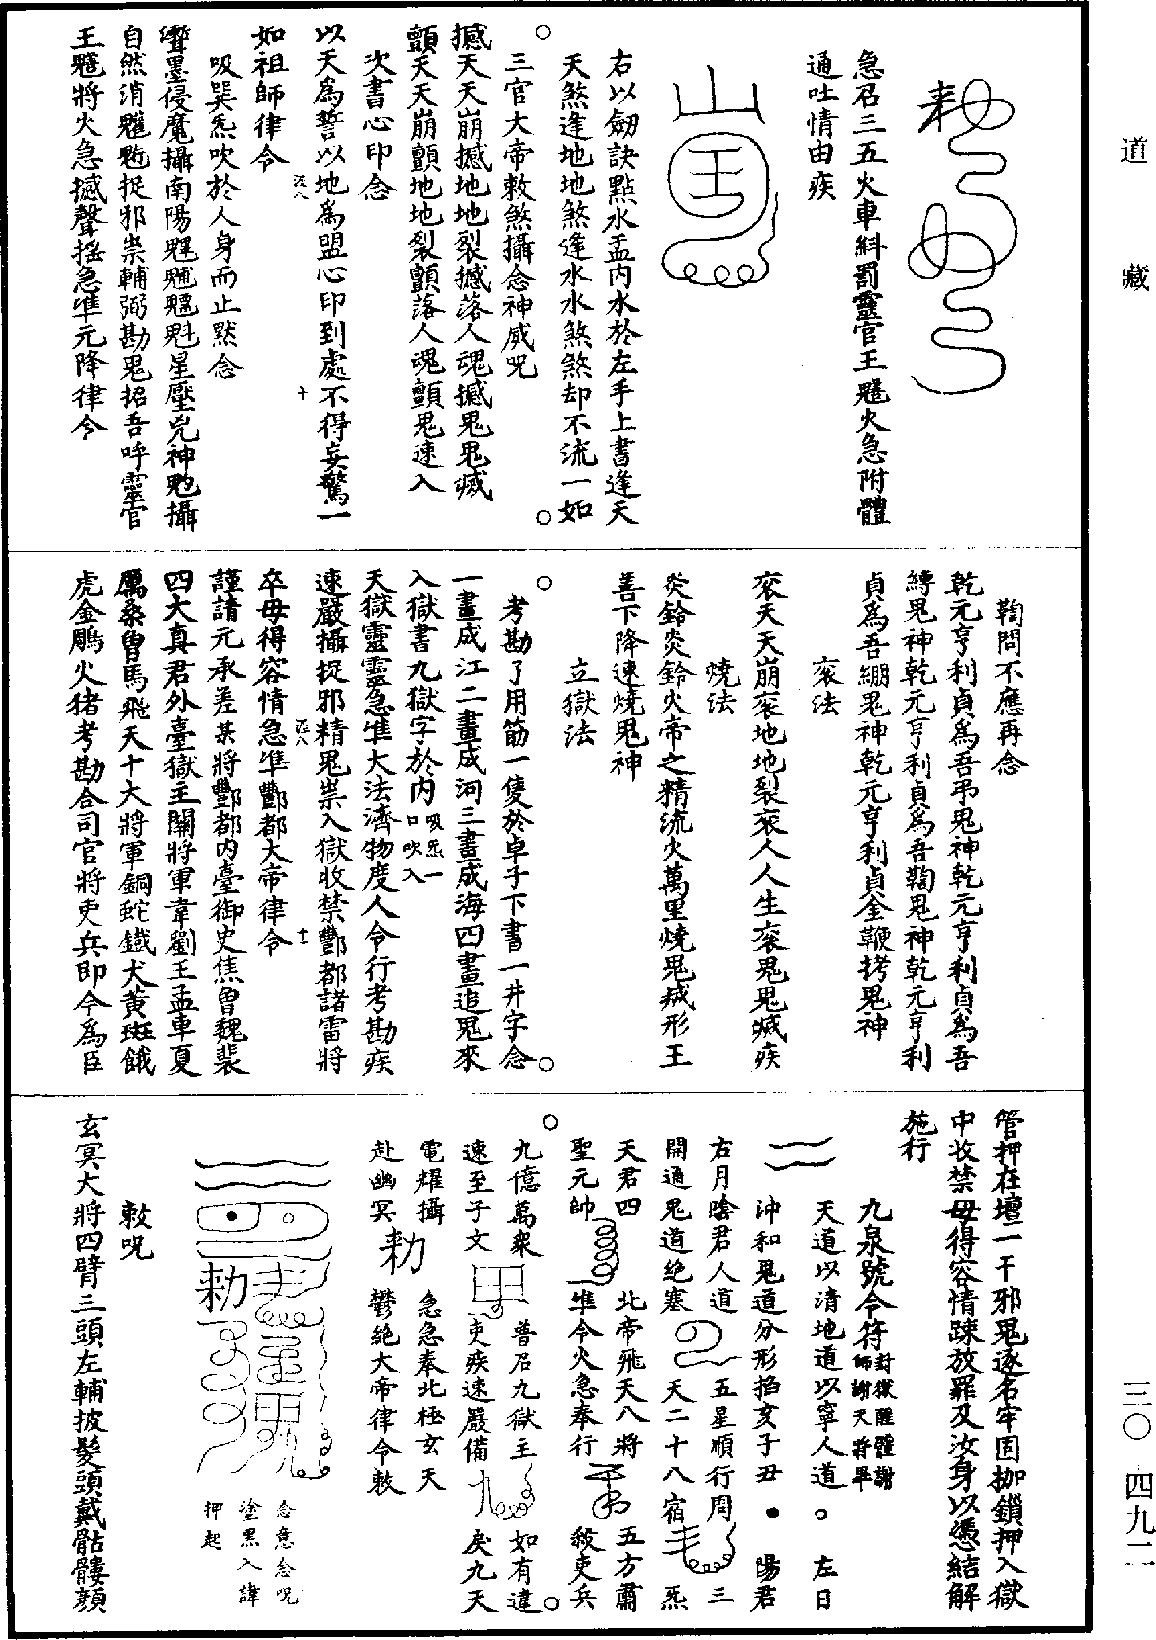 道藏
急召三五火車糾罰靈官王魋火急附體
通吐情由疾
右以劒訣點水盂內水於左手上書逢天
天煞逢地地煞逢水水煞煞却不流一如
三官大帝敕煞攝念神威咒
撼天天崩撼地地裂撼落人魂撼鬼鬼滅
顫天天崩顫地地裂顫落人魂顫鬼速入
次書心印念
以天為誓以地為盟心印到處不得妄驚一
如祖師律令
吸巽炁吹於人身而止默念
攝南陽
星壓兇神
攝
自然消
捉邪祟輔弼勘鬼招吾呼靈官
王魋將火急撼聲搖急準元降律令
鞫問不應再念
乾元亨利貞為吾弔鬼神乾元亨利貞為吾
縛鬼神乾元亨利貞為吾鞫鬼神乾元亨利
貞為吾綳鬼神乾元亨利貞金鞭拷鬼神
衮法
衮天天崩衮地地裂衮人人生衮鬼鬼滅疾
燒法
炎鈴炎鈴火帝之精流火萬里燒鬼滅形王
善下降速燒鬼神
立獄法
考勘了用筋一隻於卓子下書一井字念
一畫成江二畫成河三畫成海四畫追鬼來
入獄書九獄字於內吸炁一口吹入
天獄靈靈急準大法濟物度人令行考勘疾
速嚴攝捉邪精鬼祟入獄收禁酆都諸雷將
卒毋得容情急準酆都大帝律令
謹請元承差某將酆都內臺御史焦曾魏裴
四大真君外臺獄主關將軍韋劉王孟車夏
厲桑曾馬飛天十大將軍銅蛇鐵犬黃斑餓
虎金鵰火猪考勘合司官將吏兵即今為臣
管押在壇一干邪鬼逐名牢固枷鎖押入獄
中收禁毋得容情疎放罪及汝身以憑結解
施行
九泉號令符封獄醒體謝師謝天將畢
天道以清地道以寧人道 左日
沖和鬼道分形掐亥子丑 陽君
右月陰君人道 五星順行周 三
開通鬼道絕塞 天二十八宿 炁
天君四 北帝飛天八將 五方肅
聖元帥 準令火急奉行 殺吏兵
九億萬衆 普召九獄主 如有違
速至子文 吏疾速嚴備 戾九天
電耀攝 急急奉北極玄天
赴幽冥 敕 鬱絕大帝律令敕
敕
念意念咒
塗黑入諱
押起
敕咒
玄冥大將四臂三頭左輔披髮頭戴骷髏顏
三〇 四九二